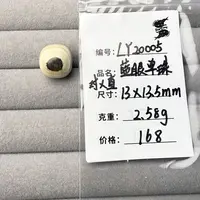 编号: LY20005
品名: 萌眼单珠
对义直
尺寸: 13X13.5mm
克重: 2.58g
价格: 168